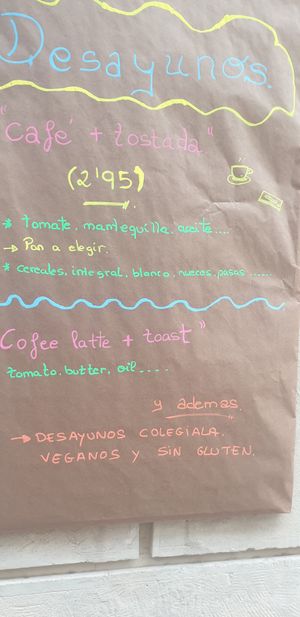 Desayunos.
"Café + tostada"
(2'95)
* tomate, mantequilla, aceite....
→ Pan a elegir.
* cereales, integral, blanco, nueces, pasas......
Cofee latte + toast"
tomato, butter, oil....
y ademas.
→ DESAYUNOS COLEGIALA.
VEGANOS Y SIN GLUTEN.